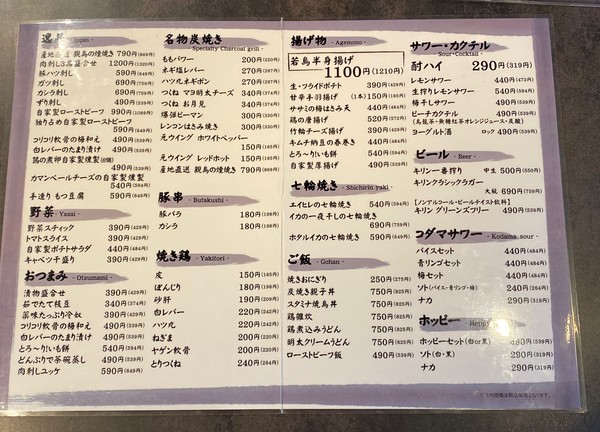 逸品 - Ippin -
産地直送 親鳥の燻焼き 790円(869円)
肉刺し3点盛合せ 1200円(1320円)
豚ハツ刺し 590円(649円)
ガツ刺し 690円(759円)
カシラ刺し 690円(759円)
ずり刺し 490円(539円)
自家製ローストビーフ 990円(1089円)
独り占め自家製ローストビーフ
590円(649円)
コリコリ軟骨の梅和え 490円(539円)
白レバーのたまり漬け 490円(539円)
鶏の煮卵自家製燻製(6個)
490円(539円)
カマンベールチーズの自家製燻製
540円(594円)
手造り もつ豆腐 590円(649円)
野菜 - Yasai -
野菜スティック 390円(429円)
トマトスライス 390円(429円)
自家製ポテトサラダ 440円(484円)
キャベツ千盛り 390円(429円)
おつまみ - Otsumami -
漬物盛合せ 390円(429円)
茹でたて枝豆 340円(374円)
薬味たっぷり冷奴 390円(429円)
コリコリ軟骨の梅和え 490円(539円)
白レバーのたまり漬け 490円(539円)
とろ〜りいも餅 540円(594円)
どんぶりで茶碗蒸し 490円(539円)
肉刺しユッケ 590円(649円)
名物炭焼き
- Specialty Charcoal grill -
ももパワー 200円(220円)
ネギ塩レバー 270円(297円)
ハツ丸ネギポン 270円(297円)
つくね マヨ明太チーズ 340円(374円)
つくね お月見 340円(374円)
爆弾ピーマン 300円(330円)
レンコンはさみ焼き 300円(330円)
元ウイング ホワイトペッパー
150円(165円)
元ウイング レッドホット 150円(165円)
産地直送 親鳥の燻焼き 790円(869円)
豚串 - Butakushi -
豚バラ 180円(198円)
カシラ 180円(198円)
焼き鶏 - Yakitori -
皮 150円(165円)
ぼんじり 180円(198円)
砂肝 190円(209円)
白レバー 220円(242円)
ハツ丸 220円(242円)
ねぎま 200円(220円)
ヤゲン軟骨 200円(220円)
とりつくね 240円(264円)
揚げ物 - Agemono -
若鳥半身揚げ
1100円(1210円)
生・フライドポテト 390円(429円)
甘辛手羽揚げ (1本) 150円(165円)
ササミの梅はさみ天 440円(484円)
鶏の唐揚げ 520円(572円)
竹輪チーズ揚げ 390円(429円)
キムチ納豆の春巻き 440円(484円)
とろ〜りいも餅 540円(594円)
自家製厚揚げ 490円(539円)
七輪焼き - Shichirin yaki -
エイヒレの七輪焼き 540円(594円)
イカの一夜干しの七輪焼き
690円(759円)
ホタルイカの七輪焼き 590円(649円)
ご飯 - Gohan -
焼きおにぎり 250円(275円)
炭焼き親子丼 750円(825円)
スタミナ焼鳥丼 750円(825円)
鶏雑炊 750円(825円)
鶏煮込みうどん 750円(825円)
明太クリームうどん 750円(825円)
ローストビーフ飯 490円(539円)
サワー・カクテル
- Sour・Cocktail -
酎ハイ 290円(319円)
レモンサワー 440円(473円)
生搾りレモンサワー 540円(594円)
梅干しサワー 490円(539円)
ピーチカクテル 490円(539円)
ヨーグルト酒 ロック 490円(539円)
ビール - Beer -
キリン一番搾り 中生 500円(550円)
キリンクラシックラガー
大瓶 690円(759円)
[ノンアルコール・ビールテイスト飲料]
キリン グリーンズフリー 490円(539円)
コダマサワー - Kodama sour -
バイスセット 440円(484円)
青リンゴセット 440円(484円)
梅セット 440円(484円)
ソト(バイス・青リンゴ・梅) 240円(264円)
ナカ 290円(319円)
ホッピー - Hoppy
ホッピーセット(白or黒) 490円(539円)
ソト(白・黒) 290円(319円)
ナカ 290円(319円)